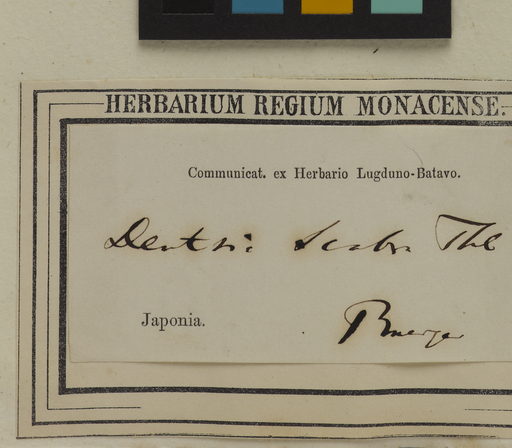 HERBARIUM REGIUM MONACENSE.
Communicat. ex Herbario Lugduno-Batavo.
Deutzia scabra Thb
Japonia.
Buerger